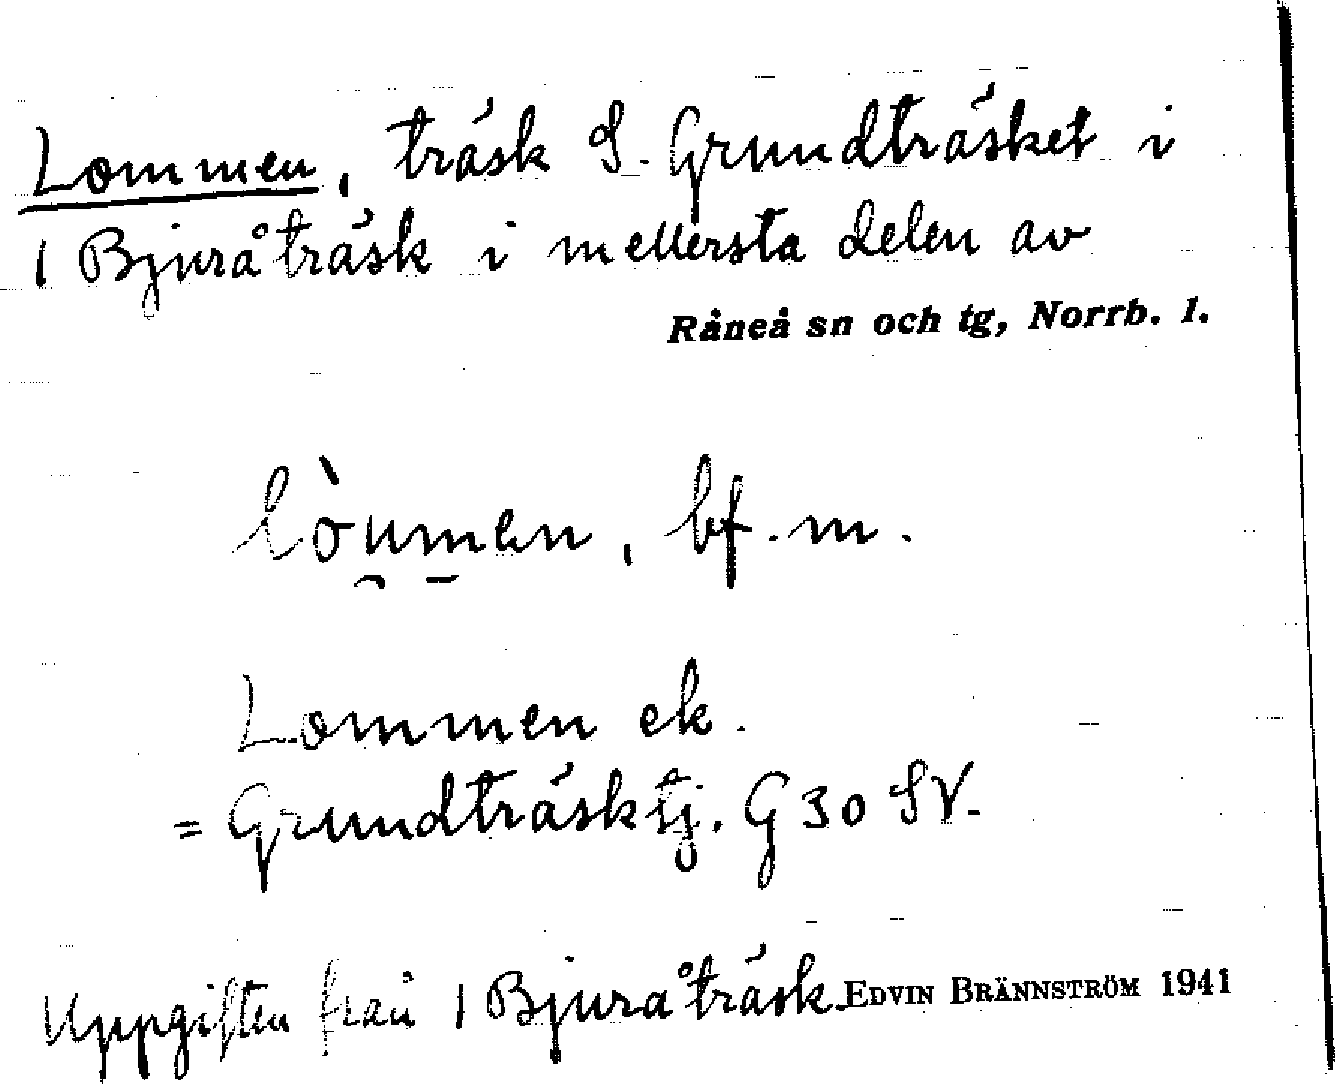 Lommen, träsk S. Grundträsket i
1 Bjuråträsk i mellersta delen av
Råneå sn och tg, Norrb. l.
lòumen, bf. m.
Lommen ek.
= Grundträsktj. G 30 SV.
Uppgiften från 1 Bjuråträsk. EDVIN BRÄNNSTRÖM 1941